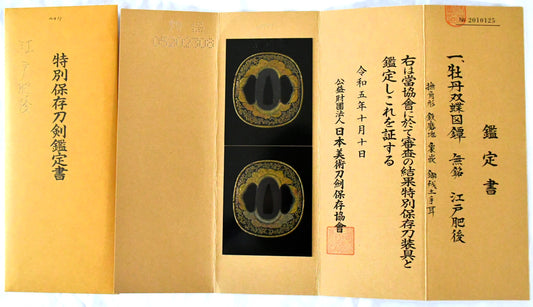 特別保存刀剣鑑定書
江戸肥後
№ 2010125
鑑定書
一、牡丹双蝶図鐔 無銘 江戸肥後
右は當協會に於て審査の結果特別保存刀装具と
鑑定しこれを証する
令和五年十月十日
公益財團法人 日本美術刀剣保存協會